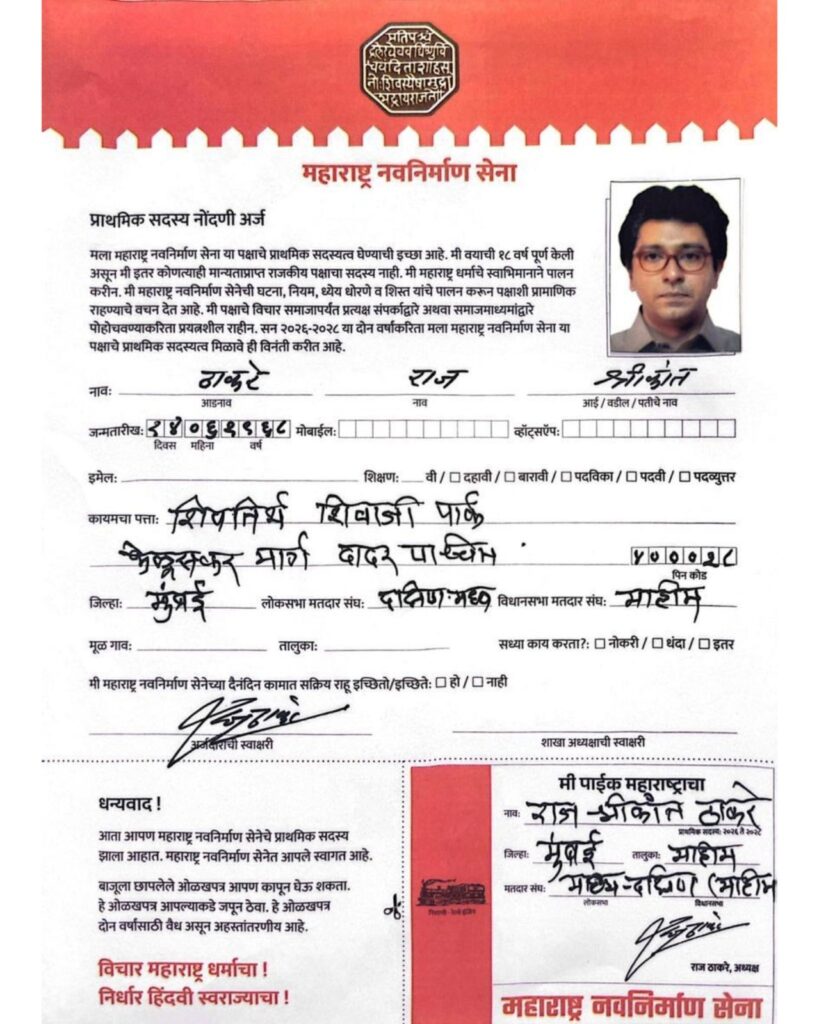 महाराष्ट्र नवनिर्माण सेना
प्राथमिक सदस्य नोंदणी अर्ज
मला महाराष्ट्र नवनिर्माण सेना या पक्षाचे प्राथमिक सदस्यत्व घेण्याची इच्छा आहे. मी वयाची १८ वर्ष पूर्ण केली
असून मी इतर कोणत्याही मान्यताप्राप्त राजकीय पक्षाचा सदस्य नाही. मी महाराष्ट्र धर्माचे स्वाभिमानाने पालन
करीन. मी महाराष्ट्र नवनिर्माण सेनेची घटना, नियम, ध्येय धोरणे व शिस्त यांचे पालन करून पक्षाशी प्रामाणिक
राहण्याचे वचन देत आहे. मी पक्षाचे विचार समाजापर्यंत प्रत्यक्ष संपर्काद्वारे अथवा समाजमाध्यमांद्वारे
पोहोचवण्याकरिता प्रयत्नशील राहीन. सन २०२६-२०२८ या दोन वर्षाकरिता मला महाराष्ट्र नवनिर्माण सेना या
पक्षाचे प्राथमिक सदस्यत्व मिळावे ही विनंती करीत आहे.
नाव: ठाकरे राज श्रीकांत
आडनाव नाव आई / वडील / पतीचे नाव
जन्मतारीख: १४०६१९६८ मोबाईल: व्हॉट्सॲप:
दिवस महिना वर्ष
इमेल: शिक्षण: वी / दहावी / बारावी / पदविका / पदवी / पदव्युत्तर
कायमचा पत्ता: शिवतिर्थ शिवाजी पार्क
केळूसकर मार्ग दादर पश्चिम ४०००२८
पिन कोड
जिल्हा: मुंबई लोकसभा मतदार संघ: दक्षिण-मध्य विधानसभा मतदार संघ: माहीम
मूळ गाव: तालुका: सध्या काय करता?: नोकरी / धंदा / इतर
मी महाराष्ट्र नवनिर्माण सेनेच्या दैनंदिन कामात सक्रिय राहू इच्छितो/इच्छिते: हो / नाही
अर्जदाराची स्वाक्षरी शाखा अध्यक्षाची स्वाक्षरी
धन्यवाद !
आता आपण महाराष्ट्र नवनिर्माण सेनेचे प्राथमिक सदस्य
झाला आहात. महाराष्ट्र नवनिर्माण सेनेत आपले स्वागत आहे.
बाजूला छापलेले ओळखपत्र आपण कापून घेऊ शकता.
हे ओळखपत्र आपल्याकडे जपून ठेवा. हे ओळखपत्र
दोन वर्षांसाठी वैध असून अहस्तांतरणीय आहे.
विचार महाराष्ट्र धर्माचा !
निर्धार हिंदवी स्वराज्याचा !
मी पाईक महाराष्ट्राचा
नाव: राज श्रीकांत ठाकरे
प्राथमिक सदस्य: २०२६ ते २०२८
जिल्हा: मुंबई तालुका: माहीम
मतदार संघ: मध्य-दक्षिण (माहीम
लोकसभा विधानसभा
निशाणी - रेल्वे इंजिन
राज ठाकरे, अध्यक्ष
महाराष्ट्र नवनिर्माण सेना